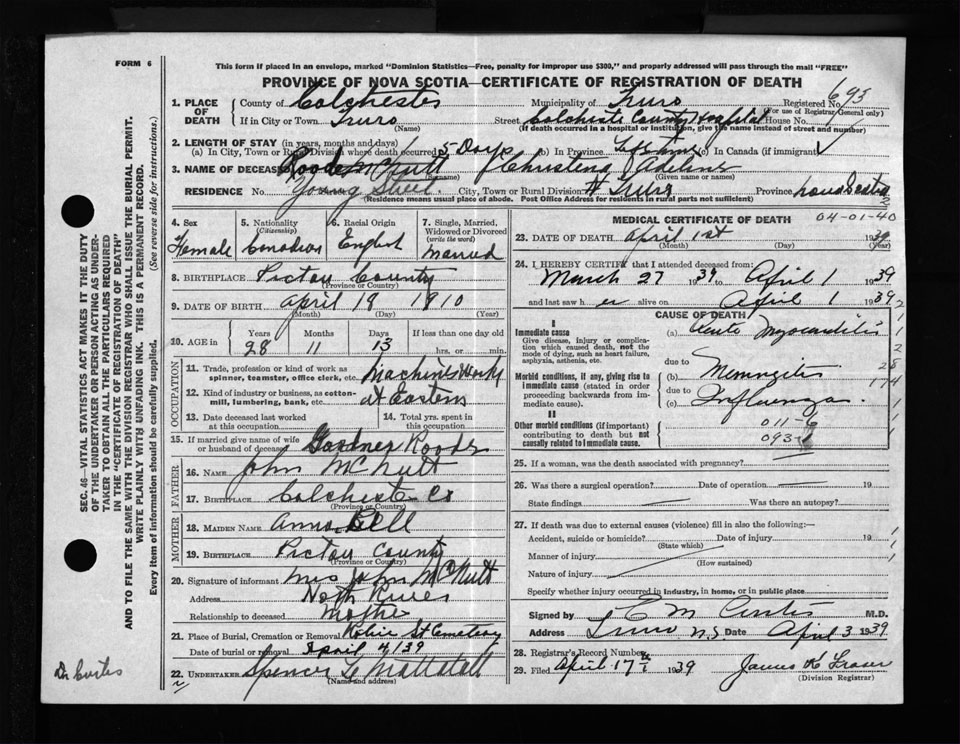 FORM 6
This form if placed in an envelope, marked "Dominion Statistics—Free, penalty for improper use $300," and properly addressed will pass through the mail "FREE"
PROVINCE OF NOVA SCOTIA—CERTIFICATE OF REGISTRATION OF DEATH
693
1. PLACE OF DEATH
County of Colchester Municipality of Truro Registered No.
(For use of Registrar General only)
If in City or Town Truro (Name) Street Colchester County Hospital House No.
(If death occurred in a hospital or institution, give the name instead of street and number)
2. LENGTH OF STAY (in years, months and days)
(a) In City, Town or Rural Division where death occurred 5 Days (b) In Province Lifetime (c) In Canada (if immigrant)
3. NAME OF DECEASED Roode McNutt Christina Adeline
(Surname) (Given name or names)
RESIDENCE No. Young Street City, Town or Rural Division Truro Province Nova Scotia
(Residence means usual place of abode. Post Office Address for residents in rural parts not sufficient)
4. Sex Female
5. Nationality (Citizenship) Canadian
6. Racial Origin English
7. Single, Married, Widowed or Divorced (write the word) Married
8. BIRTHPLACE Pictou County
(Province or Country)
9. DATE OF BIRTH April 19 1910
(Month) (Day) (Year)
10. AGE in Years Months Days If less than one day old
28 11 13 hrs. or min.
OCCUPATION
11. Trade, profession or kind of work as spinner, teamster, office clerk, etc. Machine Work
12. Kind of industry or business, as cotton-mill, lumbering, bank, etc. at Eastern
13. Date deceased last worked at this occupation
14. Total yrs. spent in this occupation
15. If married give name of wife or husband of deceased Gardner Roode
FATHER
16. NAME John McNutt
17. BIRTHPLACE Colchester Co
(Province or Country)
MOTHER
18. MAIDEN NAME Anna Bell
19. BIRTHPLACE Pictou County
(Province or Country)
20. Signature of informant Mrs John McNutt
Address North River
Relationship to deceased Mother
21. Place of Burial, Cremation or Removal Robie St Cemetery
Date of burial or removal April 4/39
22. UNDERTAKER Spencer L Mattatall
(Name and address)
MEDICAL CERTIFICATE OF DEATH
04-01-40
23. DATE OF DEATH April 1st 1939
(Month) (Day) (Year)
24. I HEREBY CERTIFY that I attended deceased from:
March 27 1939 to April 1 1939
and last saw her alive on April 1 1939
CAUSE OF DEATH
I
Immediate cause (a) Acute Myocarditis
Give disease, injury or complication which caused death, not the mode of dying, such as heart failure, asphyxia, asthenia, etc.
due to
Morbid conditions, if any, giving rise to immediate cause (stated in order proceeding backwards from immediate cause).
(b) Meningitis
due to
(c) Influenza.
II
Other morbid conditions (if important) contributing to death but not causally related to immediate cause.
011-6
093-1
25. If a woman, was the death associated with pregnancy?
26. Was there a surgical operation? Date of operation 19
State findings Was there an autopsy?
27. If death was due to external causes (violence) fill in also the following:—
Accident, suicide or homicide? Date of injury 19
(State which)
Manner of injury
(How sustained)
Nature of injury
Specify whether injury occurred in industry, in home, or in public place
Signed by C M Curtis M.D.
Address Truro N.S Date April 3 1939
28. Registrar's Record Number
29. Filed April 17 1939 James K Fraser
(Division Registrar)
SEC. 46—VITAL STATISTICS ACT MAKES IT THE DUTY
OF THE UNDERTAKER OR PERSON ACTING AS UNDER-
TAKER TO OBTAIN ALL THE PARTICULARS REQUIRED
IN THE "CERTIFICATE OF REGISTRATION OF DEATH"
AND TO FILE THE SAME WITH THE DIVISION REGISTRAR WHO SHALL ISSUE THE BURIAL PERMIT.
WRITE PLAINLY WITH UNFADING INK. THIS IS A PERMANENT RECORD.
Every item of information should be carefully supplied. (See reverse side for instructions.)
Dr Curtis